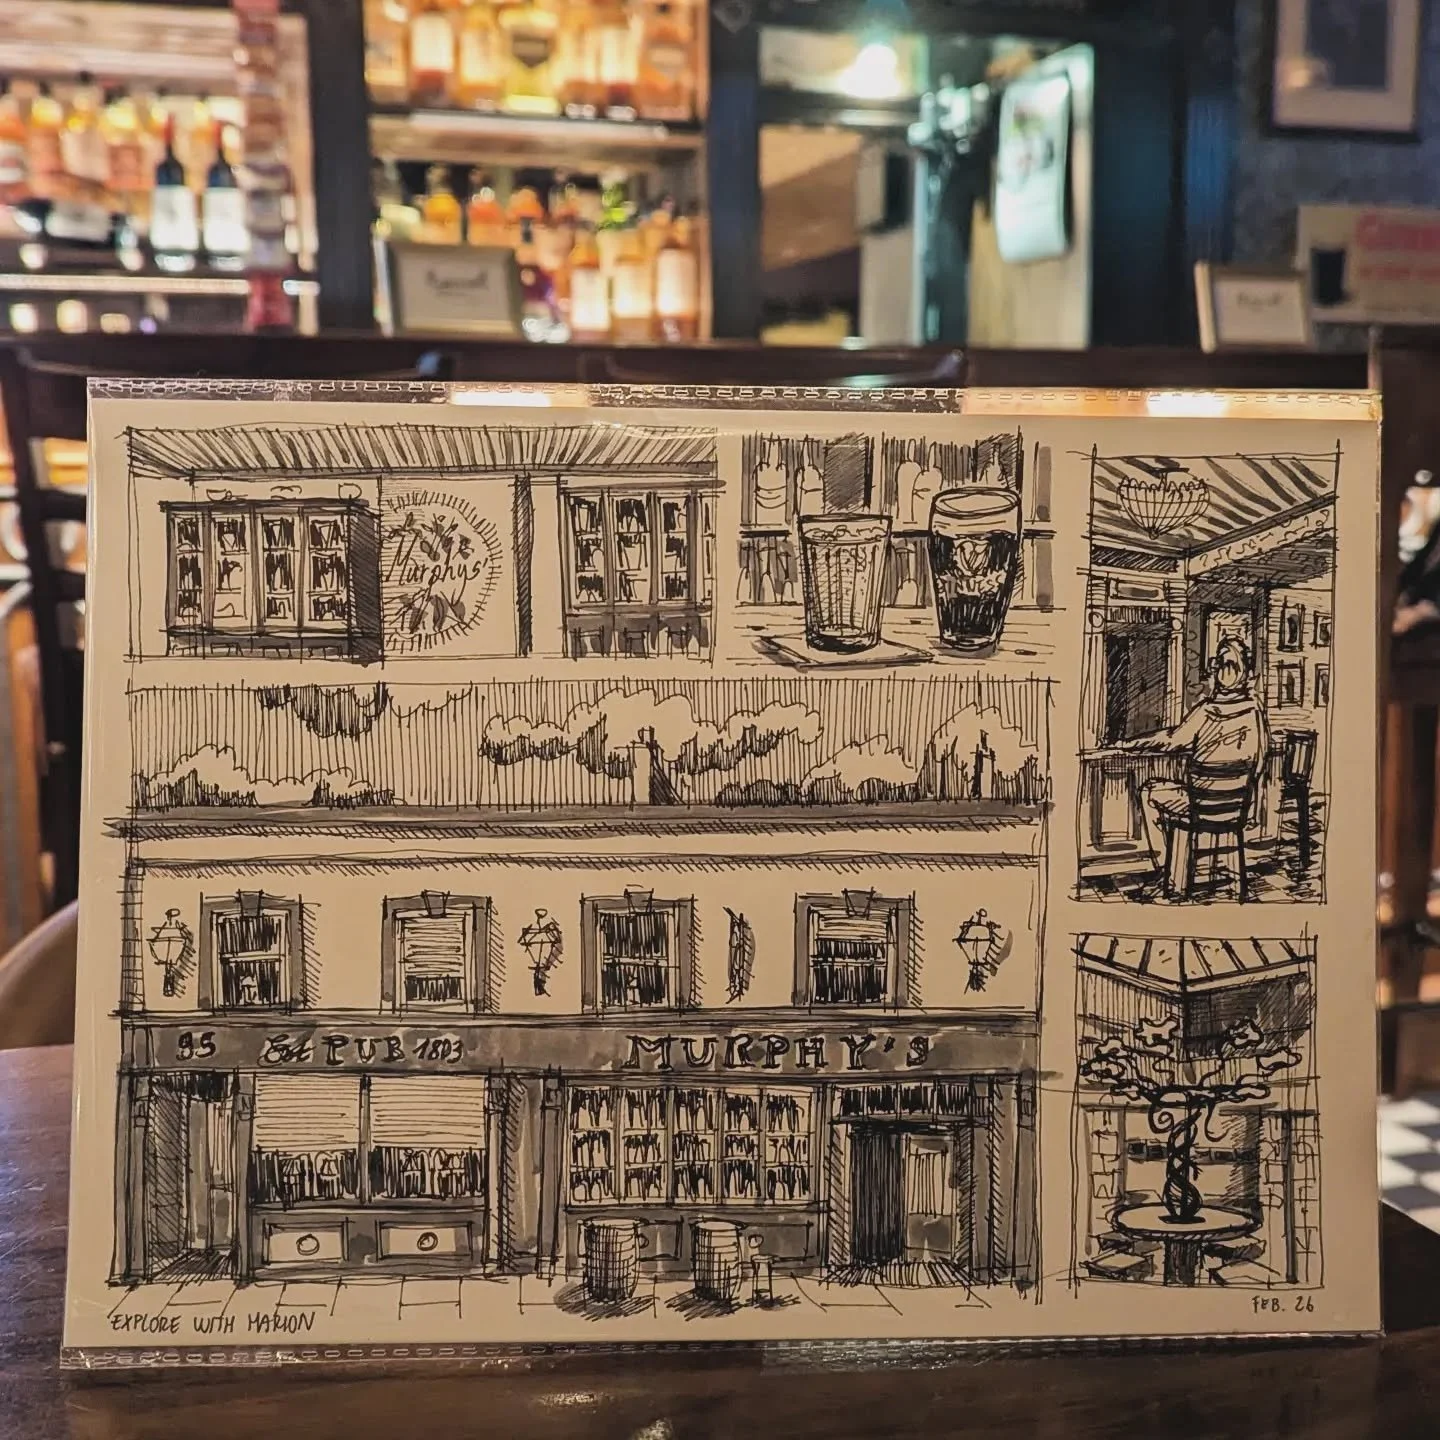 The
Murphys'
95 Est PUB 1803 MURPHY'S
EXPLORE WITH MARION
FEB. 26